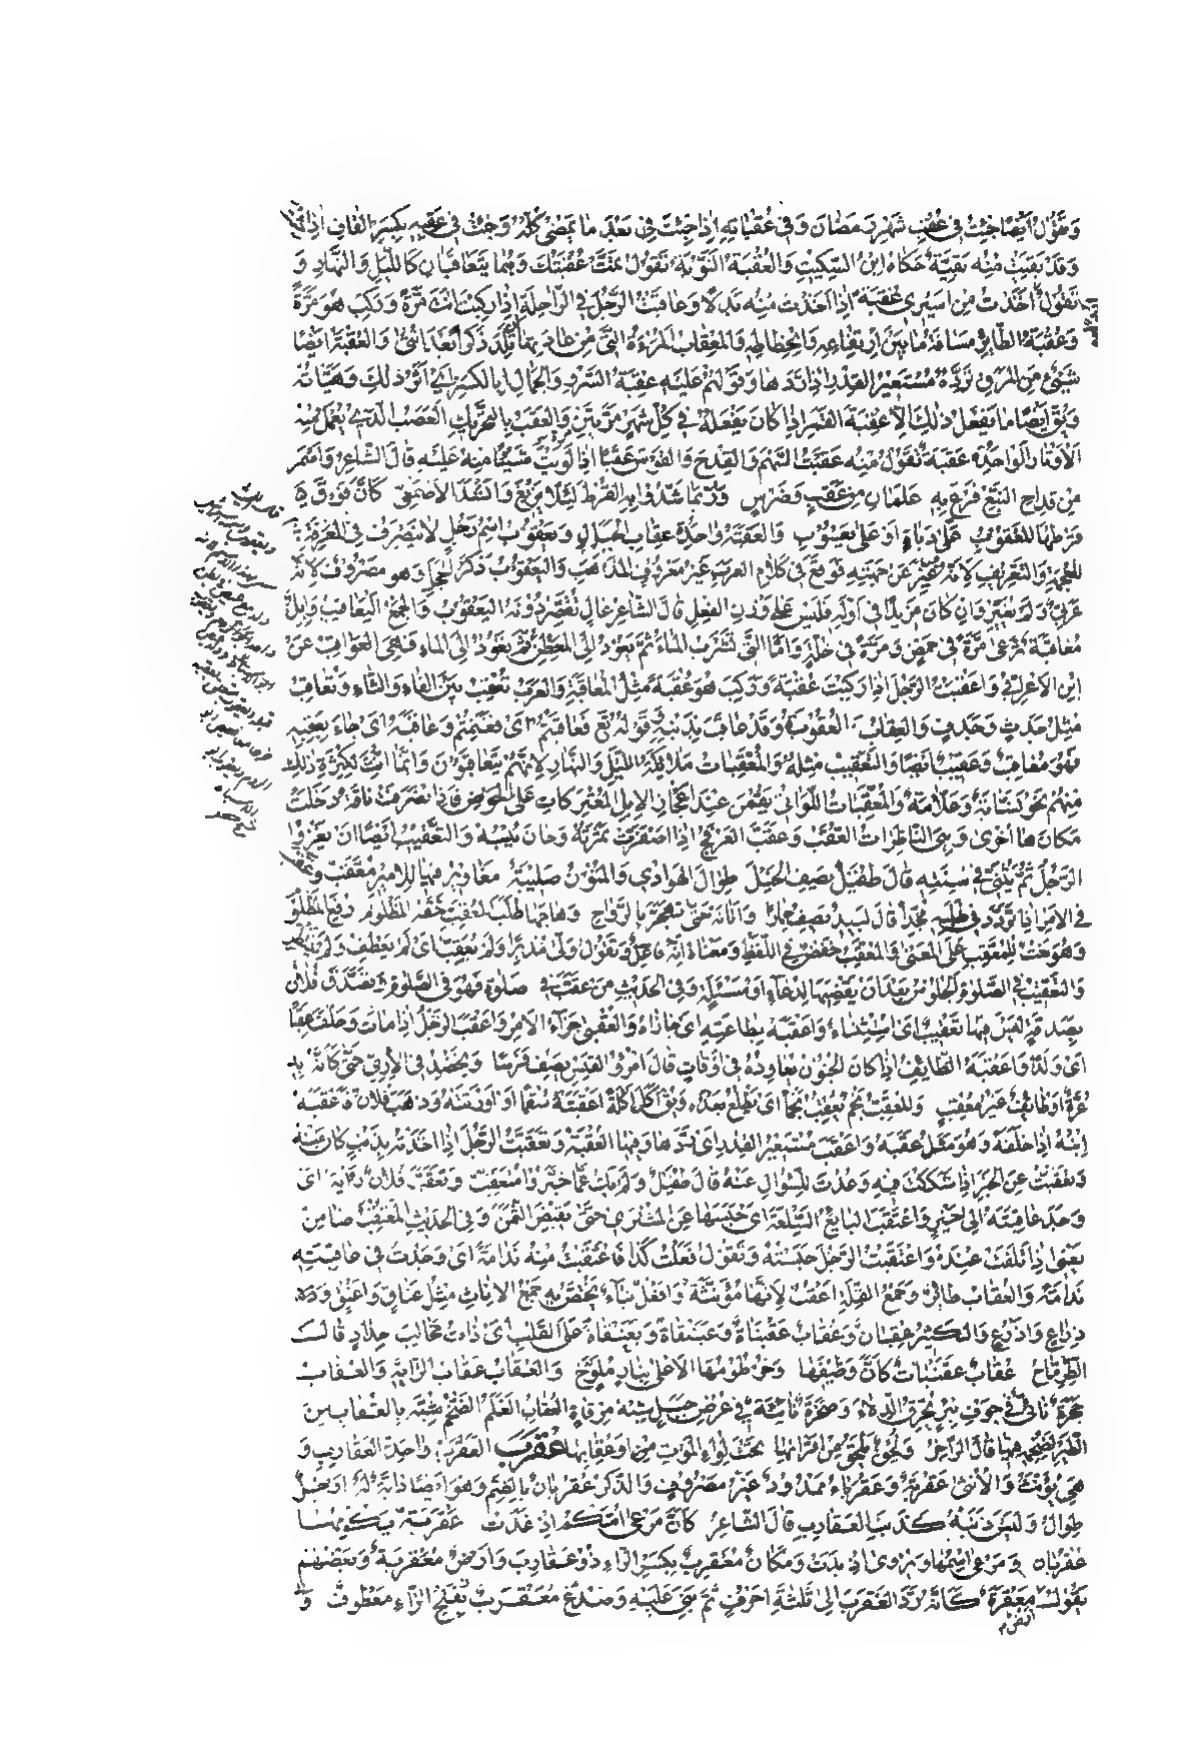 وَتَقُولُ أَيْضًا جِئْتُ فِي عُقْبِ شَهْرِ رَمَضَانَ وَفِي عُقْبَانِهِ إِذَا جِئْتَ مِنْ بَعْدِ مَا يَمْضِي كُلُّهُ وَجِئْتُ فِي عَقِبِهِ بِكَسْرِ الْقَافِ إِذَا
وَقَدْ بَقِيَتْ مِنْهُ بَقِيَّةٌ حَكَاهُ ابْنُ السِّكِّيتِ وَالْعُقْبَةُ النَّوْبَةُ تَقُولُ تَمَّتْ عُقْبَتُكَ وَهُمَا يَتَعَاقَبَانِ كَاللَّيْلِ وَالنَّهَارِ وَ
تَقُولُ أَخَذْتُ مِنْ أَسِيرِي عُقْبَةً إِذَا أَخَذْتَ مِنْهُ بَدَلًا وَعَاقَبْتُ الرَّجُلَ فِي الرَّاحِلَةِ إِذَا رَكِبْتَ أَنْتَ مَرَّةً وَرَكِبَ هُوَ مَرَّةً
وَعُقْبَةُ الطَّائِرِ مَسَافَةُ مَا بَيْنَ ارْتِفَاعِهِ وَانْحِطَاطِهِ وَالْمِعْقَابُ الْمَرْأَةُ الَّتِي مِنْ عَادَتِهَا أَنْ تَلِدَ ذَكَرًا بَعْدَ أُنْثَى وَالْعُقْبَةُ أَيْضًا
شَيْءٌ مِنَ الْمَرَقِ يَرُدُّهُ مُسْتَعِيرُ الْقِدْرِ إِذَا رَدَّهَا وَقَوْلُهُمْ عَلَيْهِ عِقْبَةُ السَّرْوِ وَالْجَمَالِ بِالْكَسْرِ أَيْ أَثَرُ ذَلِكَ وَهَيْئَاتُهُ
وَيُقَالُ أَيْضًا مَا يَفْعَلُ ذَلِكَ إِلَّا عِقْبَةَ الْقَمَرِ إِذَا كَانَ يَفْعَلُهُ فِي كُلِّ شَهْرٍ مَرَّتَيْنِ وَالْعَقَبُ بِالتَّحْرِيكِ الْعَصَبُ الَّذِي يُعْمَلُ مِنْهُ
الْأَوْتَارُ الْوَاحِدَةُ عَقَبَةٌ تَقُولُ مِنْهُ عَقَبْتُ السَّهْمَ وَالْقِدْحَ وَالْقَوْسَ عَقْبًا إِذَا لَوَيْتَ شَيْئًا مِنْهُ عَلَيْهِ قَالَ الشَّاعِرُ وَأَسْمَرَ
مِنْ قِدَاحِ النَّبْعِ فَرْعٍ بِهِ عَلَمَانِ مِنْ عَقَبٍ وَضَرْسِ وَرُبَّمَا شَدُّوا بِهِ الْقُرْطَ لِئَلَّا يَزِيغَ وَأَنْشَدَ الْأَصْمَعِيُّ كَأَنَّ خَوْقَ
قُرْطِهَا الْمَعْقُوبِ عَلَى دَبَاةٍ أَوْ عَلَى يَعْسُوبِ وَالْعَقَبَةُ وَاحِدَةُ عِقَابِ الْجِبَالِ وَيَعْقُوبُ اسْمُ رَجُلٍ لَا يَنْصَرِفُ فِي الْمَعْرِفَةِ
لِلْعُجْمَةِ وَالتَّعْرِيفِ لِأَنَّهُ غُيِّرَ عَنْ جِهَتِهِ فَوَقَعَ فِي كَلَامِ الْعَرَبِ غَيْرَ مَعْرُوفِ الْمَذْهَبِ وَالْيَعْقُوبُ ذَكَرُ الْحَجَلِ وَهُوَ مَصْرُوفٌ لِأَنَّهُ
عَرَبِيٌّ لَمْ يُغَيَّرْ وَإِنْ كَانَ مَزِيدًا فِي أَوَّلِهِ فَلَيْسَ عَلَى وَزْنِ الْفِعْلِ قَالَ الشَّاعِرُ عَالٍ يُقَصِّرُ دُونَهُ الْيَعْقُوبُ وَالْجَمْعُ الْيَعَاقِيبُ وَإِبِلٌ
مُعَاقِبَةٌ تَرْعَى مَرَّةً فِي حَمْضٍ وَمَرَّةً فِي خُلَّةٍ وَأَمَّا الَّتِي تَشْرَبُ الْمَاءَ ثُمَّ تَعُودُ إِلَى الْمَعْطِنِ ثُمَّ تَعُودُ إِلَى الْمَاءِ فَهِيَ الْعَوَاقِبُ عَنِ
ابْنِ الْأَعْرَابِيِّ وَأَعْقَبْتُ الرَّجُلَ إِذَا رَكِبْتَ عُقْبَةً وَرَكِبَ هُوَ عُقْبَةً مِثْلُ الْمُعَاقَبَةِ وَالْعَرَبُ تُعْقِبُ بَيْنَ الْفَاءِ وَالثَّاءِ وَتُعَاقِبُ
مِثْلُ جَدَثٍ وَجَدَفٍ وَالْعِقَابُ الْعُقُوبَةُ وَقَدْ عَاقَبَ بِذَنْبِهِ قَوْلُهُ تَعَ فَعَاقَبْتُمْ أَيْ فَغَنِمْتُمْ وَعَاقَبَهُ أَيْ جَاءَ بِعَقِبِهِ
فَهُوَ مُعَاقِبٌ وَعَقِيبٌ أَيْضًا وَالتَّعْقِيبُ مِثْلُهُ وَالْمُعَقِّبَاتُ مَلَائِكَةُ اللَّيْلِ وَالنَّهَارِ لِأَنَّهُمْ يَتَعَاقَبُونَ وَإِنَّمَا أُنِّثَ لِكَثْرَةِ ذَلِكَ
مِنْهُمْ نَحْوُ نَسَّابَةٍ وَعَلَّامَةٍ وَالْمُعَقِّبَاتُ اللَّوَاتِي يَقُمْنَ عِنْدَ أَعْجَازِ الْإِبِلِ الْمُعْتَرِكَاتِ عَلَى الْحَوْضِ فَإِذَا انْصَرَفَتْ نَاقَةٌ دَخَلَتْ
مَكَانَهَا أُخْرَى وَهِيَ النَّاظِرَاتُ الْعُقَبَ وَعَقَّبَ الْعَرْفَجُ إِذَا اصْفَرَّتْ ثَمَرَتُهُ وَحَانَ يُبْسُهُ وَالتَّعْقِيبُ أَيْضًا أَنْ يَغْزُوَ
الرَّجُلُ ثُمَّ يُثَنِّيَ فِي سَنَتِهِ قَالَ طُفَيْلٌ يَصِفُ الْخَيْلَ طِوَالُ الْهَوَادِي وَالْمُتُونُ صَلِيبَةٌ مَغَاوِيرُ فِيهَا لِلْأَمِيرِ مُعَقَّبُ وَعَقَّبَ
فِي الْأَمْرِ إِذَا تَرَدَّدَ فِي طَلَبِهِ مُجِدًّا قَالَ لَبِيدٌ يَصِفُ حِمَارًا وَأَتَانَهُ حَتَّى تَهَجَّرَ بِالرَّوَاحِ وَهَاجَهَا طَلَبَ الْمُعَقِّبِ حَقَّهُ الْمَظْلُومُ رَفَعَ الْمَظْلُومَ
وَهُوَ نَعْتٌ لِلْمُعَقِّبِ عَلَى الْمَعْنَى وَالْمُعَقِّبُ خَفْضٌ فِي اللَّفْظِ وَمَعْنَاهُ أَنَّهُ فَاعِلٌ وَتَقُولُ وَلَّى مُدْبِرًا وَلَمْ يُعَقِّبْ أَيْ لَمْ يَعْطِفْ وَلَمْ يَنْتَظِرْ
وَالتَّعْقِيبُ فِي الصَّلَوةِ الْجُلُوسُ بَعْدَ أَنْ يَقْضِيَهَا لِدُعَاءٍ أَوْ مَسْئَلَةٍ وَفِي الْحَدِيثِ مَنْ عَقَّبَ فِي صَلَوةٍ فَهُوَ فِي الصَّلَوةِ وَتَصَدَّقَ فُلَانٌ
بِصَدَقَةٍ لَيْسَ فِيهَا تَعْقِيبٌ أَيْ اسْتِثْنَاءٌ وَأَعْقَبَهُ بِطَاعَتِهِ أَيْ جَازَاهُ وَالْعُقْبَى جَزَاءُ الْأَمْرِ وَأَعْقَبَ الرَّجُلُ إِذَا مَاتَ وَخَلَّفَ عَقِبًا
أَيْ وَلَدًا وَأَعْقَبَهُ الطَّائِفُ إِذَا كَانَ الْجُنُونُ يُعَاوِدُهُ فِي أَوْقَاتٍ قَالَ امْرُؤُ الْقَيْسِ يَصِفُ فَرَسًا وَيَخْضِدُ فِي الْآرِيِّ حَتَّى كَأَنَّهُ بِهِ
عُرَّةٌ أَوْ طَائِفٌ غَيْرُ مُعْقِبِ وَأَكَلَ أَكْلَةً أَعْقَبَتْهُ سُقْمًا أَوْ أَوْرَثَتْهُ وَذَهَبَ فُلَانٌ فَأَعْقَبَهُ
ابْنُهُ إِذَا خَلَفَهُ وَهُوَ مِثْلُ عَقَبَهُ وَأَعْقَبَ مُسْتَعِيرُ الْقِدْرِ أَيْ رَدَّهَا وَفِيهَا الْعُقْبَةُ وَتَعَقَّبْتُ الرَّجُلَ إِذَا أَخَذْتَهُ بِذَنْبٍ كَانَ مِنْهُ
وَتَعَقَّبْتُ عَنِ الْخَبَرِ إِذَا شَكَكْتَ فِيهِ وَعُدْتَ لِلسُّؤَالِ عَنْهُ قَالَ طُفَيْلٌ وَلَمْ يَكُ عَمَّا خَبَّرُوا مُتَعَقَّبُ وَتَعَقَّبَ فُلَانٌ رَأْيَهُ أَيْ
وَجَدَ عَاقِبَتَهُ إِلَى خَيْرٍ وَاعْتَقَبَ الْبَائِعُ السِّلْعَةَ أَيْ حَبَسَهَا عَنِ الْمُشْتَرِي حَتَّى يَقْبِضَ الثَّمَنَ وَفِي الْحَدِيثِ الْمُعْتَقِبُ ضَامِنٌ
يَعْنِي إِذَا تَلِفَتْ عِنْدَهُ وَاعْتَقَبْتُ الرَّجُلَ حَبَسْتُهُ وَتَقُولُ فَعَلْتُ كَذَا فَاعْتَقَبْتُ مِنْهُ نَدَامَةً أَيْ وَجَدْتُ فِي عَاقِبَتِهِ
نَدَامَةً وَالْعُقَابُ طَائِرٌ وَجَمْعُ الْقِلَّةِ أَعْقُبٌ لِأَنَّهَا مُؤَنَّثَةٌ وَأَفْعُلٌ بِنَاءٌ يُخْتَصُّ بِهِ جَمْعُ الْإِنَاثِ مِثْلُ عَنَاقٍ وَأَعْنُقٍ وَ
ذِرَاعٍ وَأَذْرُعٍ وَالْكَثِيرُ عِقْبَانٌ وَعُقَابٌ عَقَنْبَاةٌ وَعَبَنْقَاةٌ وَبَعَنْقَاةٌ عَلَى الْقَلْبِ أَيْ ذَاتُ مَخَالِبَ حِدَادٍ قَالَ
الطِّرِمَّاحُ عُقَابٌ عَقَنْبَاةٌ كَأَنَّ وَظِيفَهَا وَخُرْطُومَهَا الْأَعْلَى بِنَارٍ مُلَوَّحُ وَالْعُقَابُ عُقَابُ الرَّايَةِ وَالْعُقَابُ
حَجَرٌ نَاتِئٌ فِي جَوْفِ بِئْرٍ يَخْرِقُ الدِّلَاءَ وَصَخْرَةٌ نَاتِئَةٌ فِي عُرْضِ جَبَلٍ شِبْهُ مِرْقَاةٍ الْعُقَابُ الْعَلَمُ الضَّخْمُ شُبِّهَ بِالْعُقَابِ مِنَ
الطَّيْرِ قَالَ الرَّاجِزُ تَحْتَ لِوَاءِ الْمَوْتِ مِنْ أَوْ عُقَابِهَا عقرب الْعَقْرَبُ وَاحِدَةُ الْعَقَارِبِ وَ
هِيَ تُؤَنَّثُ وَالْأُنْثَى عَقْرَبَةٌ وَعَقْرَبَاءُ مَمْدُودٌ غَيْرُ مَصْرُوفٍ وَالذَّكَرُ عُقْرُبَانٌ بِالضَّمِّ وَهُوَ أَيْضًا دَابَّةٌ لَهُ أَرْجُلٌ
طِوَالٌ وَلَيْسَ ذَنَبُهُ كَذَنَبِ الْعَقَارِبِ قَالَ الشَّاعِرُ كَأَنَّ مَرْعَى أُمَّكُمْ إِذْ غَدَتْ عَقْرَبَةٌ يَكُومُهَا
عُقْرُبَانْ وَمَرْعَى اسْمُهَا وَيُرْوَى إِذْ بَدَتْ وَمَكَانٌ مُعَقْرِبٌ بِكَسْرِ الرَّاءِ ذُو عَقَارِبَ وَأَرْضٌ مُعَقْرِبَةٌ وَبَعْضُهُمْ
يَقُولُ مَعْقَرَةٌ كَأَنَّهُ رَدَّ الْعَقْرَبَ إِلَى ثَلَثَةِ أَحْرُفٍ ثُمَّ بَنَى عَلَيْهِ وَصُدْغٌ مُعَقْرَبٌ بِفَتْحِ الرَّاءِ مَعْطُوفٌ وَ